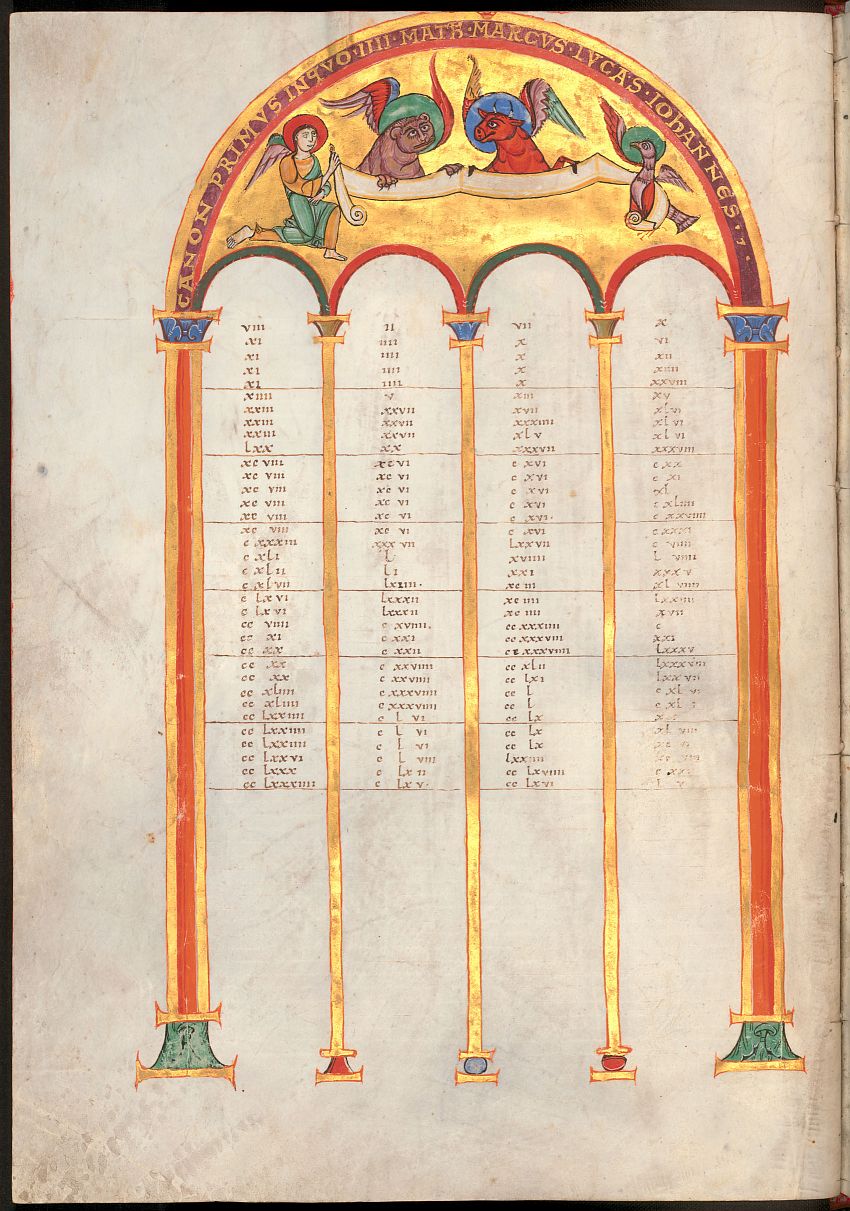 CANON · PRIMVS IN QVO · IIII · MATH · MARCVS · LVCAS · IOHANNES · 7 ·
viii ii vii x
xi iiii x vi
xi iiii x xii
xi iiii x xiiii
xi iiii x xxviii
xiiii v xiii xv
xxiii xxvii xvii xlvi
xxiii xxvii xxxiiii xlvi
xxiii xxvii xlv xlvi
lxx xx xxxvii xxxviii
xc viii xc vi c xvi c xx
xc viii xc vi c xvi c xi
xc viii xc vi c xvi xl
xc viii xc vi c xvi c xliiii
xc viii xc vi c xvi · c xxviiii
xc viii xc vi c xvi c xxxi
c xxxiii xxx vii lxxvii c viiii
c xli l xviiii l viiii
c xlii li xxi xxxv
c xlvii lxiiii · xciii xl viiii
c lxvi lxxxii xciiii lxxiiii
c lxvi lxxxii xciiii xvii
cc viiii c xviiii . cc xxxiiii c
cc xi c xxi cc xxxviii xxi
cc xx c xxii cc xxxviiii lxxxv
cc xx c xxviiii cc xlii lxxxviii
cc xx c xxviiii cc lxi lxxvii
cc xliiii c xxxviiii cc l c xl vi
cc xliiii c xxxviiii cc l
cc lxxiiii c l vi cc lx
cc lxxiiii c l vi cc lx xl viii
cc lxxiiii c l vi cc lx
cc lxxvi c l viii lxxiiii
cc lxxx c lxii cc lxviiii
cc lxxxiiii c lxv · cc lxvi